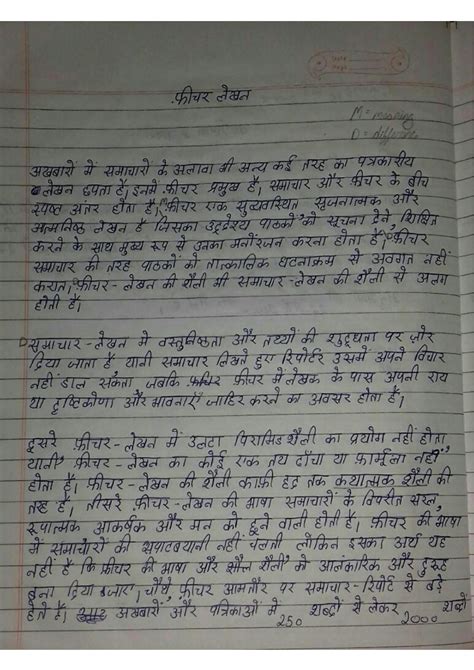 Date
Page
फ़ीचर लेखन
M = meaning
D = difference
अखबारों में समाचारों के अलावा भी अन्य कई तरह का पत्रकारीय
लेखन छपता है। इनमें फ़ीचर प्रमुख है। समाचार और फ़ीचर के बीच
स्पष्ट अंतर होता है। फ़ीचर एक सुव्यवस्थित सृजनात्मक और
आत्मनिष्ठ लेखन है जिसका उद्देश्य पाठकों को सूचना देने, शिक्षित
करने के साथ मुख्य रूप से उनका मनोरंजन करना होता है। फ़ीचर
समाचार की तरह पाठकों को तात्कालिक घटनाक्रम से अवगत नहीं
कराता। फ़ीचर-लेखन की शैली भी समाचार-लेखन की शैली से अलग
होती है।
D समाचार-लेखन में वस्तुनिष्ठता और तथ्यों की शुद्धता पर ज़ोर
दिया जाता है, यानी समाचार लिखते हुए रिपोर्टर उसमें अपने विचार
नहीं डाल सकता जबकि फ़ीचर में लेखक के पास अपनी राय
या दृष्टिकोण और भावनाएँ जाहिर करने का अवसर होता है।
दूसरे फ़ीचर-लेखन में उलटा पिरामिड शैली का प्रयोग नहीं होता
यानी फ़ीचर-लेखन का कोई एक तय ढाँचा या फ़ार्मूला नहीं
होता है। फ़ीचर-लेखन की शैली काफ़ी हद तक कथात्मक शैली की
तरह है। तीसरे फ़ीचर-लेखन की भाषा समाचारों के विपरीत सरल,
रूपात्मक आकर्षक और मन को छूने वाली होती है। फ़ीचर की भाषा
में समाचारों की सपाटबयानी नहीं चलती लेकिन इसका अर्थ यह
नहीं है कि फ़ीचर की भाषा और शैली को आलंकारिक और दुरूह
बना दिया जाए, चौथे, फ़ीचर आमतौर पर समाचार-रिपोर्ट से बड़े
होते है। अखबारों और पत्रिकाओं में 250 शब्दों से लेकर 2000 शब्दों